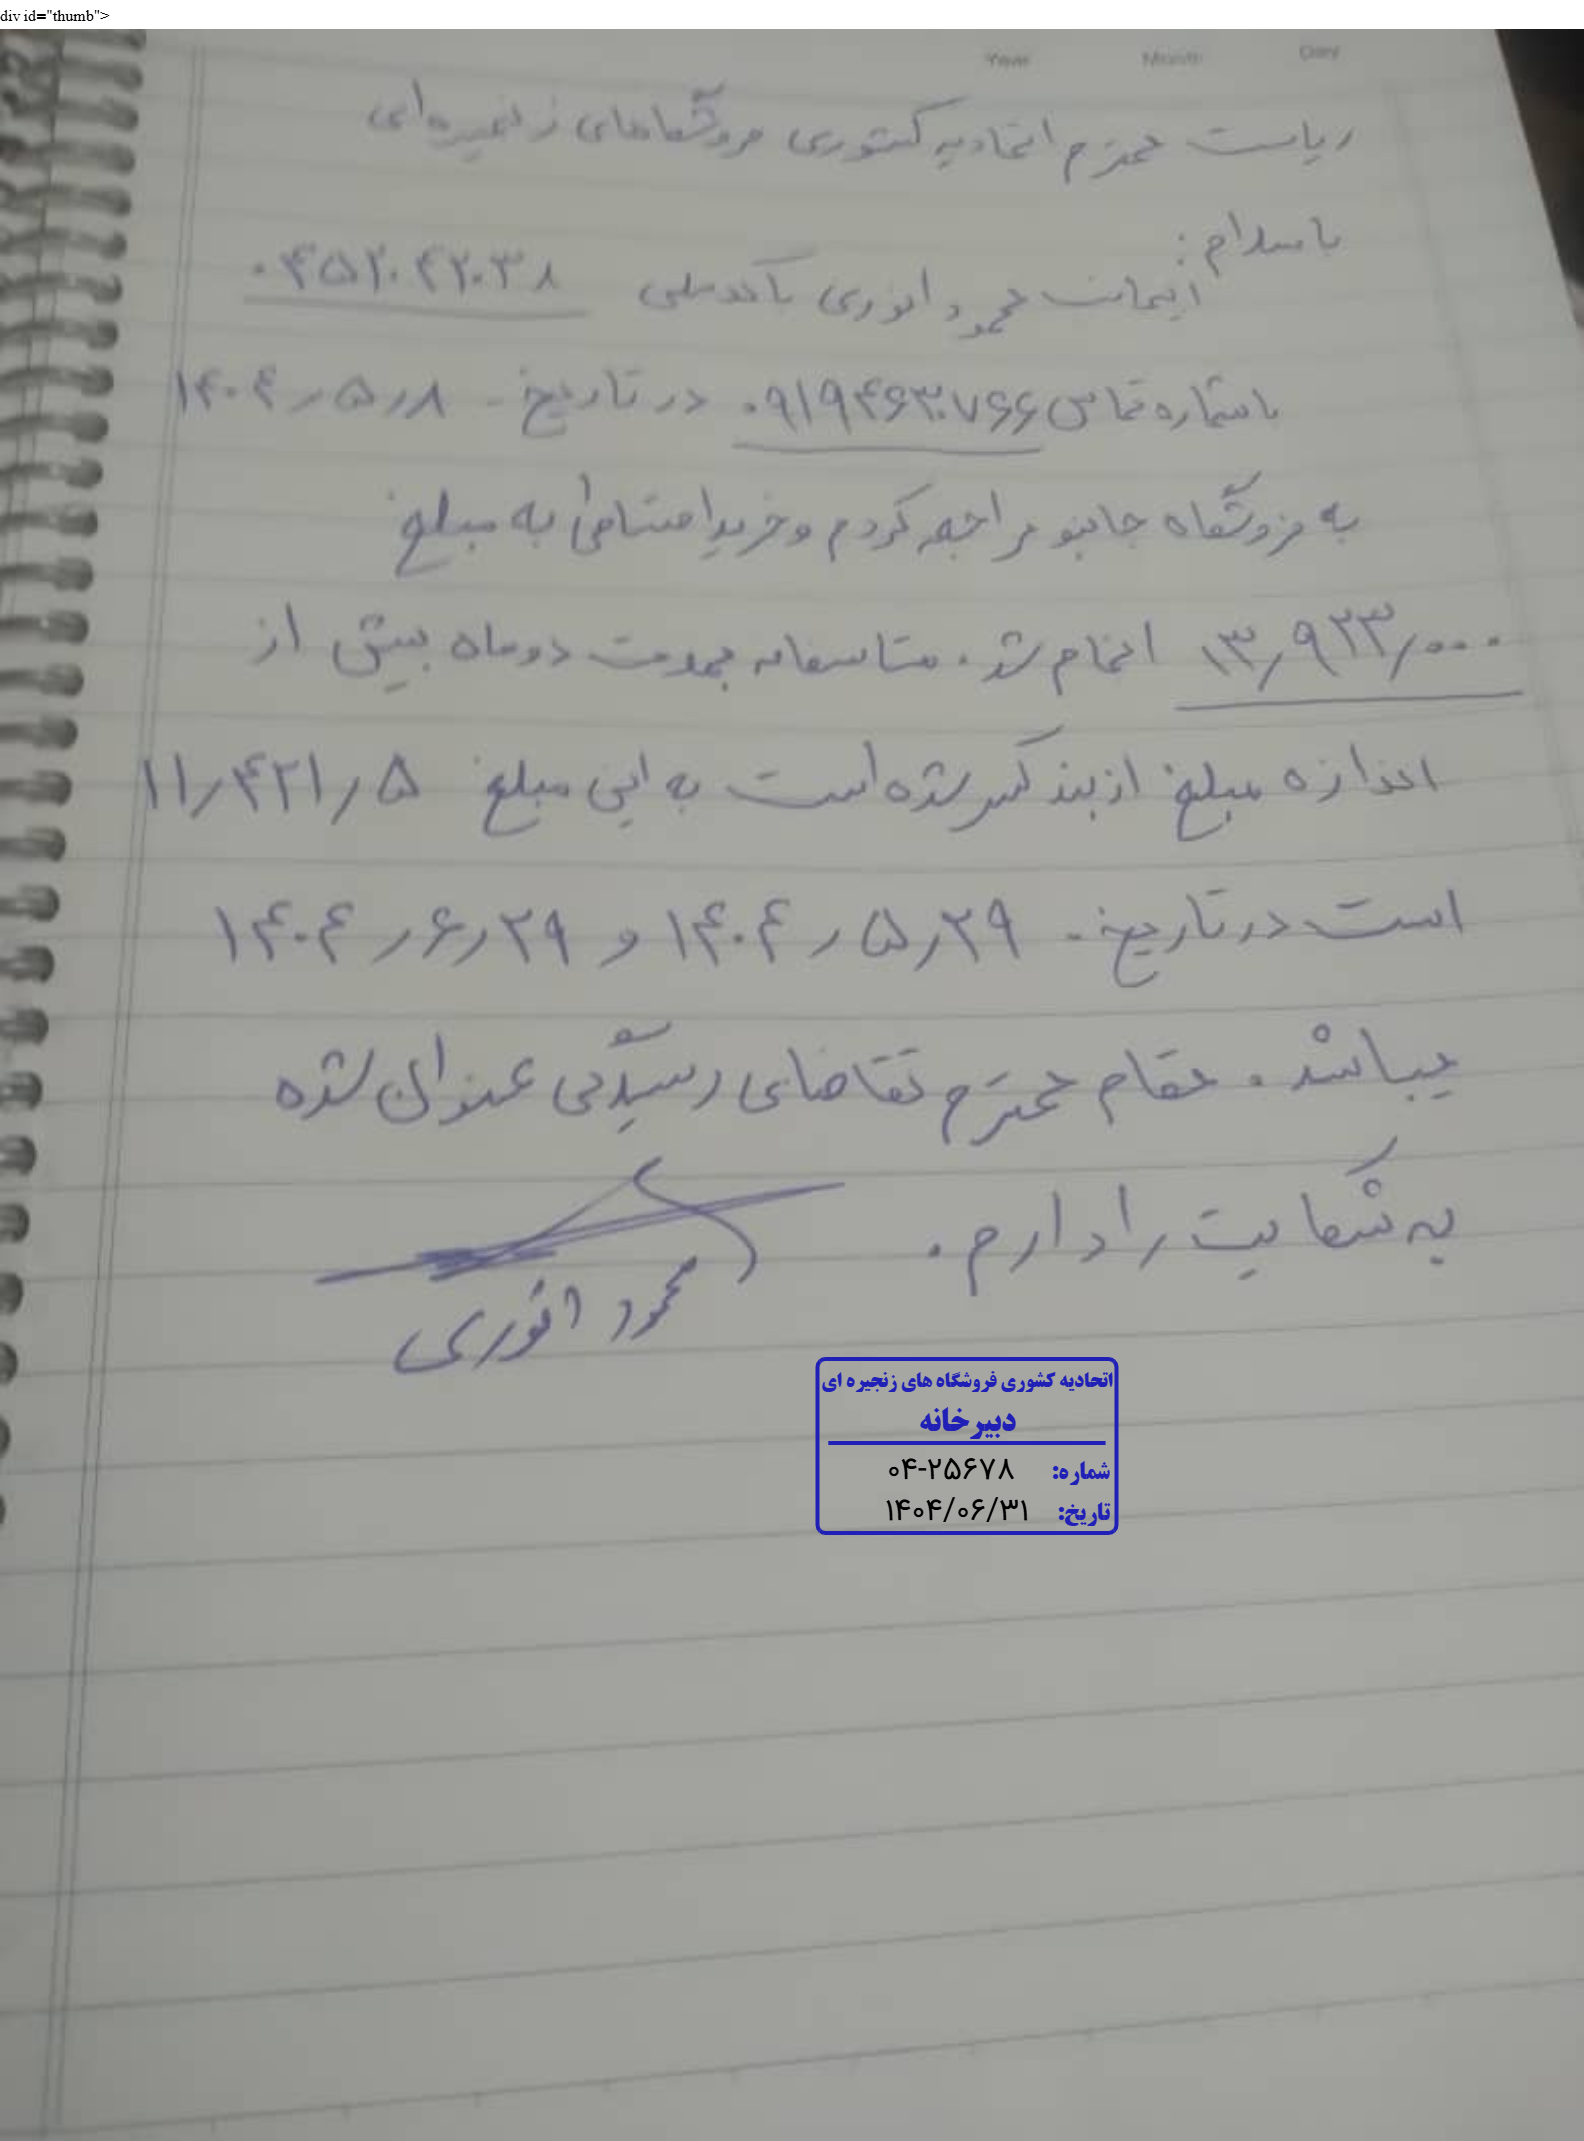 div id="thumb">
Year Month Day
ریاست محترم اتحادیه کشوری فروشگاهای زنجیره‌ای
باسلام:
اینجانب محمود انوری باکدملی ۰۴۵۲۰۴۲۰۳۸
باشماره تماس ۰۹۱۹۴۶۳۰۷۶۶ در تاریخ - ۱۴۰۴٫۵٫۸
به فروشگاه جانبو مراجعه کردم و خرید اقساطی به مبلغ
۱۳٫۹۲۳٫۰۰۰ انجام شد. متاسفانه بمدت دوماه بیش از
اندازه مبلغ از بنده کسر شده است به این مبلغ ۱۱٫۴۲۱٫۵
است در تاریخ - ۱۴۰۴٫۵٫۲۹ و ۱۴۰۴٫۶٫۲۹
میباشد. مقام محترم تقاضای رسیدگی عنوان شده
به شکایت را دارم.
محمود انوری
اتحادیه کشوری فروشگاه های زنجیره ای
دبیرخانه
شماره: ۰۴-۲۵۶۷۸
تاریخ: ۱۴۰۴/۰۶/۳۱